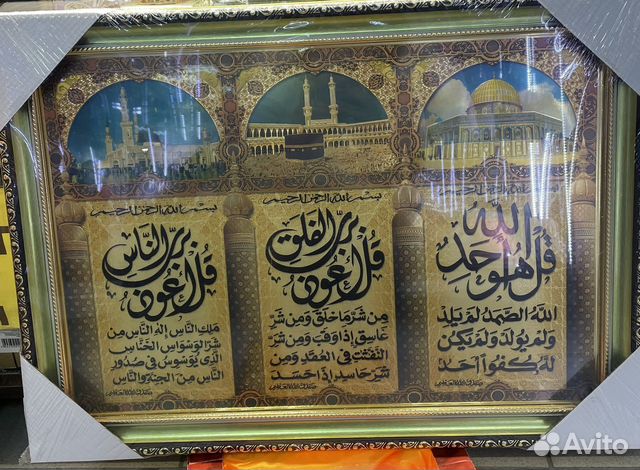 بسم الله الرحمن الرحيم
قل هو الله أحد
الله الصمد لم يلد
ولم يولد ولم يكن
له كفوا أحد
بسم الله الرحمن الرحيم
قل أعوذ برب الفلق
من شر ما خلق ومن شر
غاسق إذا وقب ومن شر
النفثت في العقد ومن
شر حاسد إذا حسد
بسم الله الرحمن الرحيم
قل أعوذ برب الناس
ملك الناس إله الناس من
شر الوسواس الخناس
الذي يوسوس في صدور
الناس من الجنة والناس
Avito